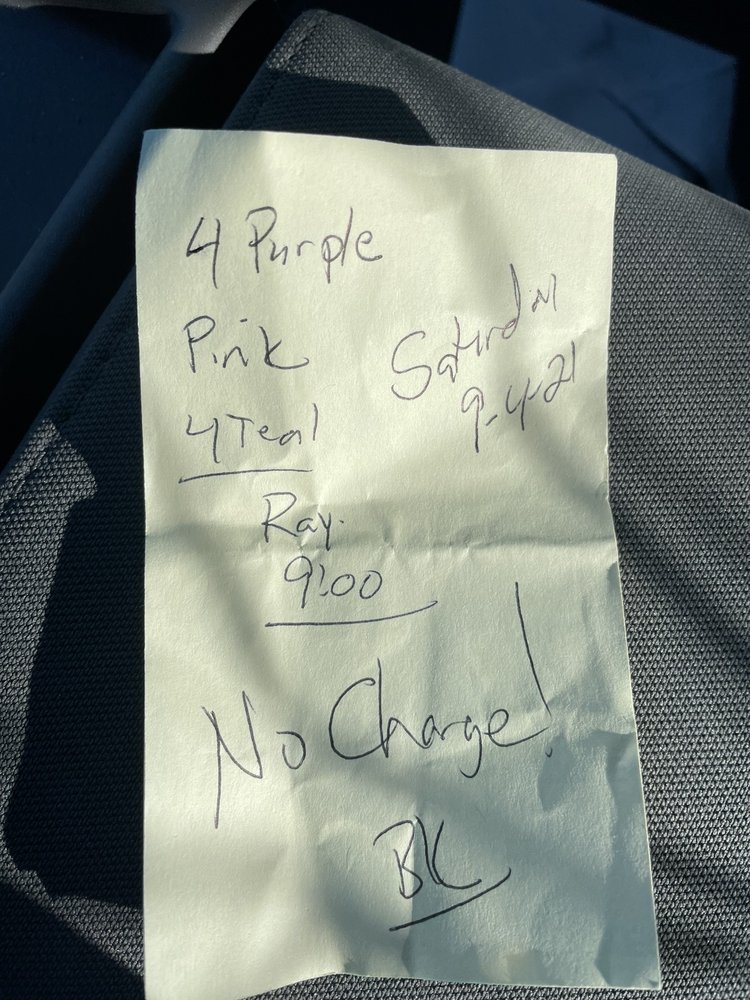 4 Purple
Pink
Saturday
9-4-21
4 Teal
Ray.
9:00
No Charge!
BK